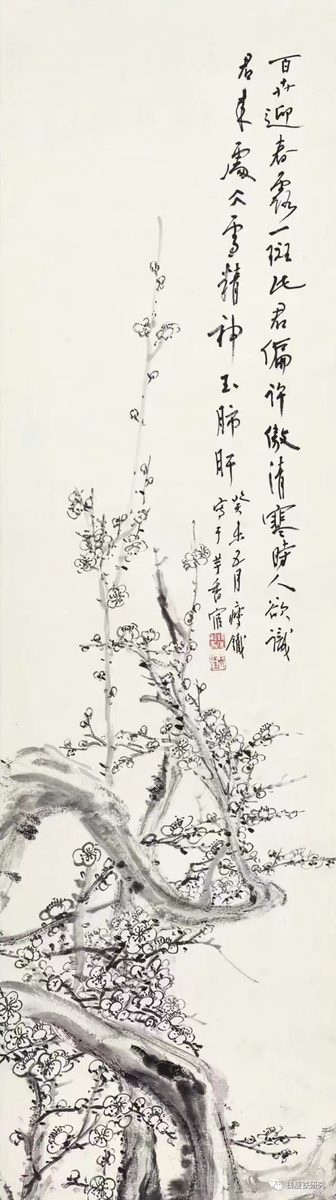 百卉迎春露一斑此君偏許傲清寒時人欲識
君來處仌雪精神玉肺肝
癸未五月瘦鐵
寫于芋香宧
钱瘦铁研究